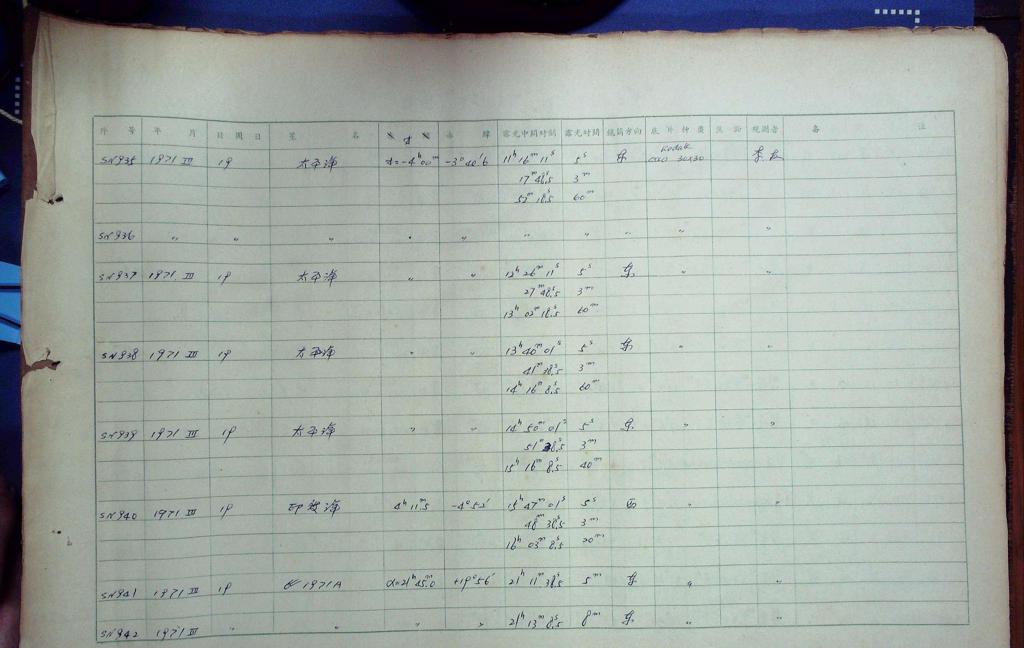 序号 年月 日期日 星名 赤纬 露光中间时刻 露光时间 镜筒方向 底片种类 观测者 备注
SN935 1971 III 19 太平洋 t=-4ʰ00ᵐ -3°40′.6 11ʰ 16ᵐ 11ˢ 5ˢ 东 Kodak 30×30 李
17ᵐ 48ˢ.5 3ᵐ
52ᵐ 18ˢ.5 60ᵐ
SN936 〃 〃 〃 〃 〃 〃 〃 〃 〃 〃
SN937 1971 III 19 太平洋 〃 〃 12ʰ 26ᵐ 11ˢ 5ˢ 东 〃 〃
27ᵐ 48ˢ.5 3ᵐ
13ʰ 02ᵐ 18ˢ.5 60ᵐ
SN938 1971 III 19 太平洋 〃 〃 13ʰ 40ᵐ 01ˢ 5ˢ 东 〃 〃
41ᵐ 38ˢ.5 3ᵐ
14ʰ 16ᵐ 8ˢ.5 60ᵐ
SN939 1971 III 19 太平洋 〃 〃 14ʰ 50ᵐ 01ˢ 5ˢ 东 〃 〃
51ᵐ 38ˢ.5 3ᵐ
15ʰ 16ᵐ 8ˢ.5 40ᵐ
SN940 1971 III 19 印度洋 4ʰ 11ᵐ.5 -4°52′ 15ʰ 47ᵐ 01ˢ 5ˢ 西 〃 〃
48ᵐ 38ˢ.5 3ᵐ
16ʰ 03ᵐ 8ˢ.5 20ᵐ
SN941 1971 III 19 1971A α=21ʰ 45ᵐ.0 +19°56′ 21ʰ 11ᵐ 38ˢ.5 5ᵐ 东 〃 〃
SN942 1971 III 〃 〃 〃 〃 21ʰ 13ᵐ 8ˢ.5 8ᵐ 东 〃 〃